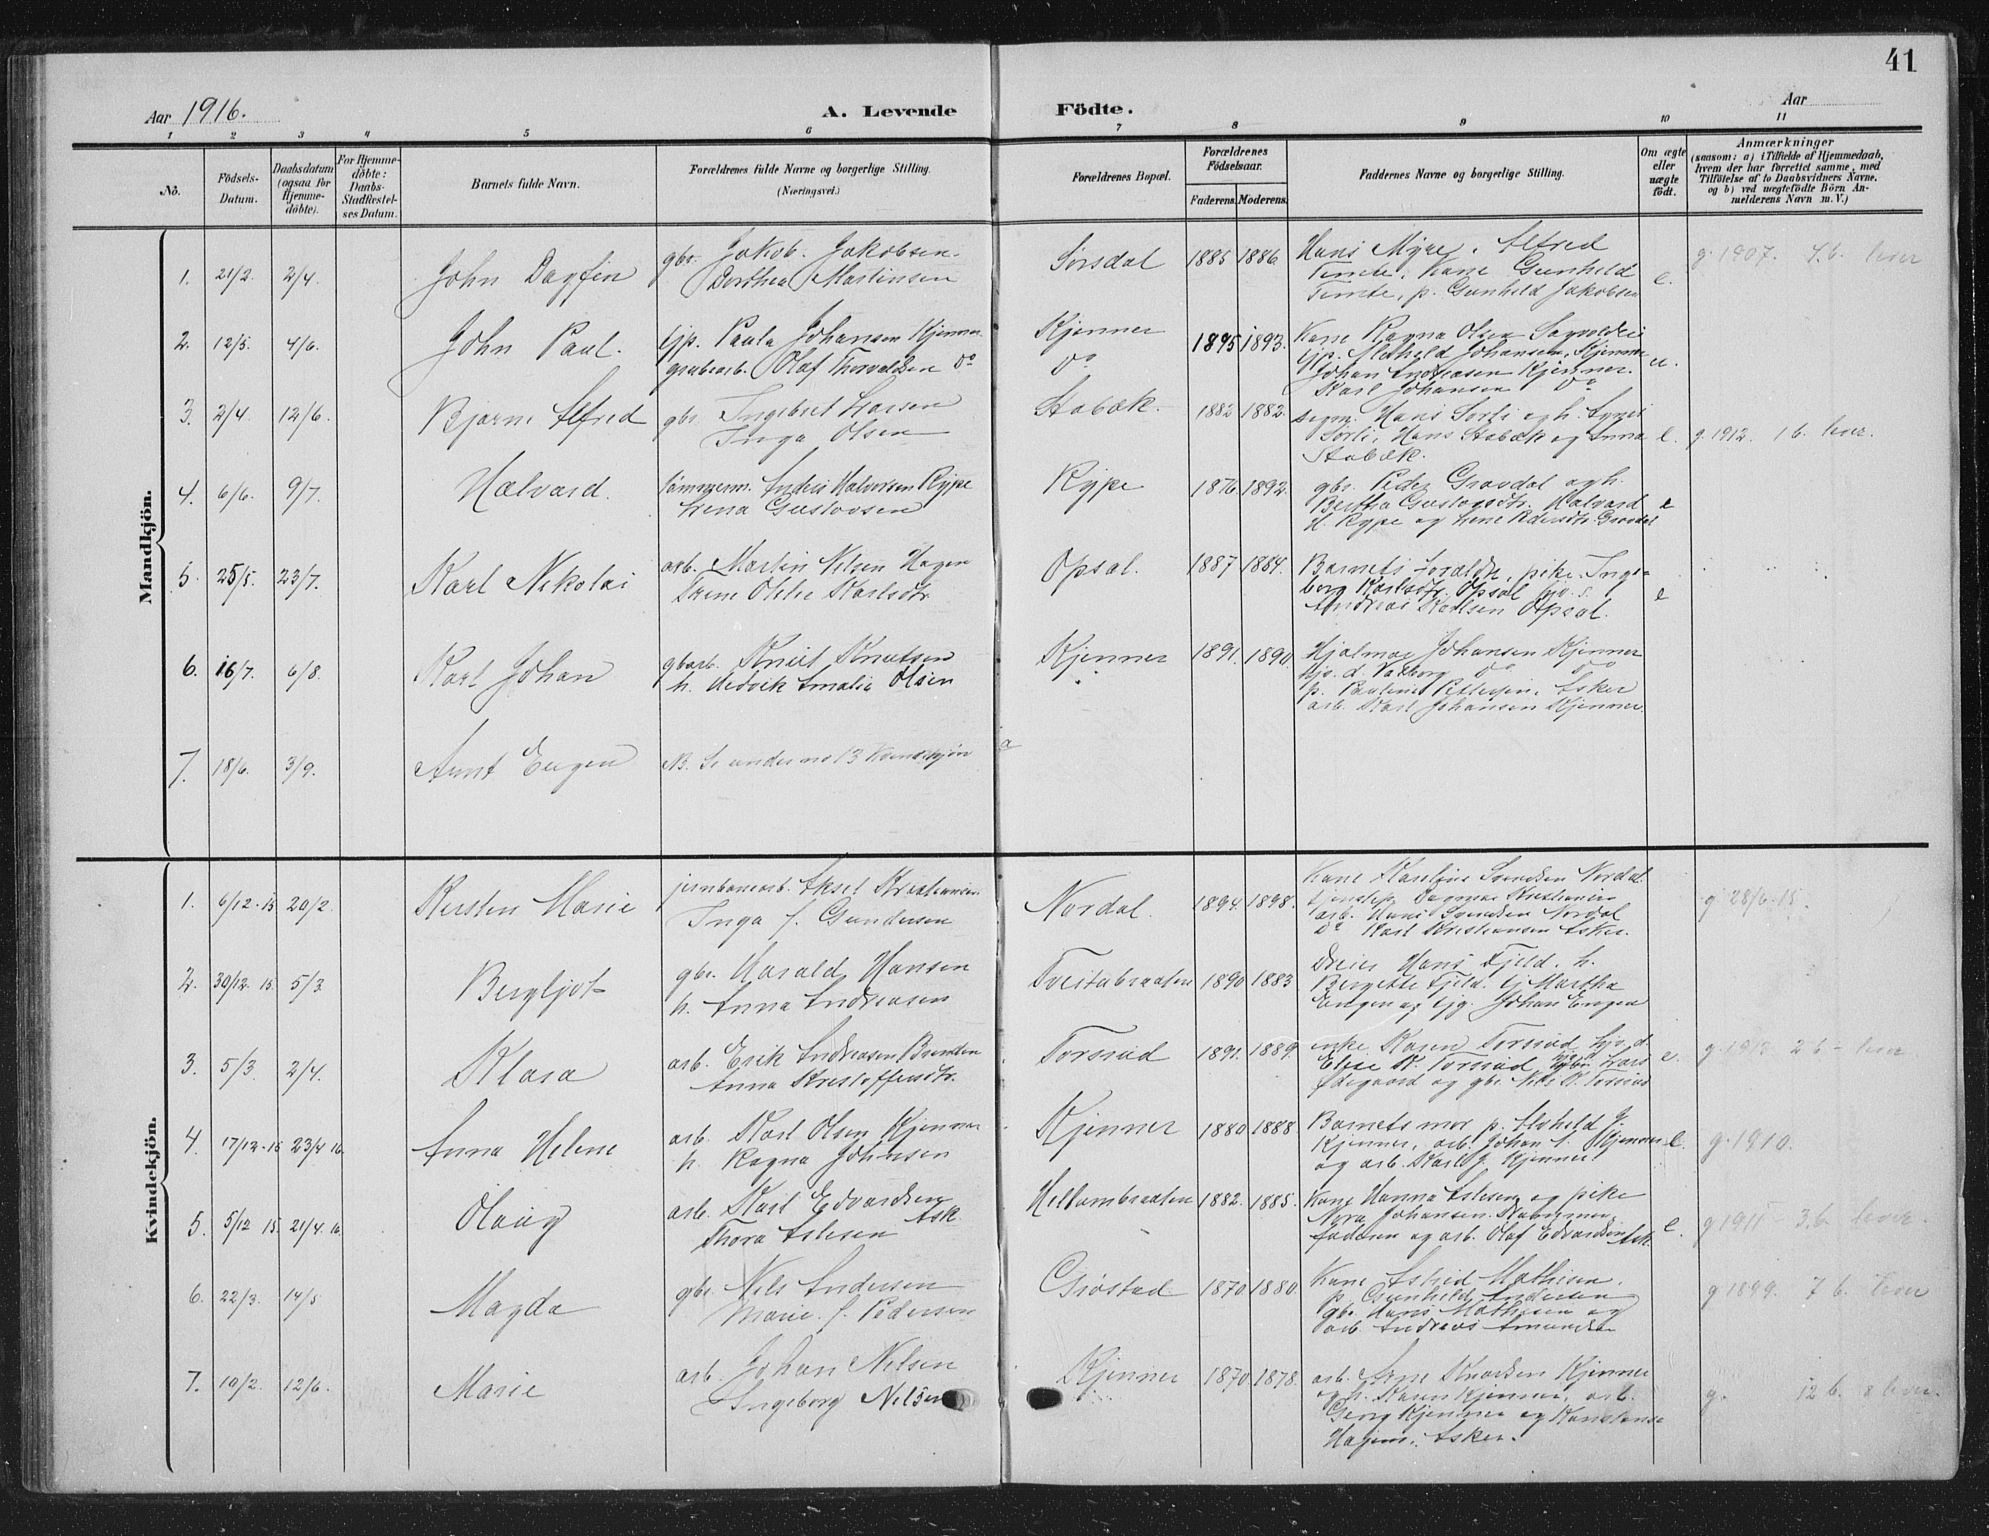 41
Aar 1916.
A. Levende Födte.
Aar
1 2 3 4 5 6 7 8 9 10 11
No.
Födsels-Datum.
Daabsdatum (ogsaa for Hjemme-döbte).
For Hjemme-döbte: Daabs-Stadfæstel-ses Datum.
Barnets fulde Navn.
Forældrenes fulde Navne og borgerlige Stilling.
(Næringsvei.)
Forældrenes Bopæl.
Forældrenes Födselsaar.
Faderens. Moderens.
Faddernes Navne og borgerlige Stilling.
Om ægte eller uægte födt.
Anmærkninger
(saasom: a) i Tilfælde af Hjemmedaab,
hvem der har forrettet samme, med
Tilföielse af to Daabsvidners Navne,
og b) ved uægtefödte Börn An-
melderens Navn m. V.)
Mandkjön.
1. 21/2. 2/4. John Dagfin gbr. Jakob Jakobsen Sørsdal 1885 1886 Hans Myre, Alfred
Dorthea Martinsen Temte, Kone Gunhild e. g. 1907. 4 b. lever
Temte, p. Gunhild Jakobsen
2. 12/5. 4/6. John Paul. tjp. Paula Johansen Kjenner Kjenner 1895 1893. Kone Ragna Olsen
grubearb. Olaf Thorvaldsen do do tjp. Johansen, Kjenner u.
Johan Andreasen Kjenner.
Karl Johansen do
3. 2/4. 12/6. Bjarne Alfred gbr. Ingebret Larsen Stabæk. 1882 1882. Hans Sørli og h.
Inga Olsen Sørli, Hans Stabæk og Anna e. g. 1912. 1 b. lever.
Stabæk.
4. 6/6. 9/7. Halvard. tømmerm. Anders Halvorsen Rype Rype 1876 1892. gbr. Peder Gravdal og h.
Lena Gustavsen Bertha Gustavsdtr. Halvard e
H. Rype og Lene Pedersdtr. Gravdal
5. 25/5. 23/7. Karl Nikolai arb. Martin Nilsen Hagen Opsal. 1887 1884. Barnets forældre, pike Inge-
Karlsdtr. borg Karlsdtr. Opsal e
Andreas Karlsen Opsal.
6. 16/7. 6/8. Karl Johan gbarb. Knut Knutsen Kjenner 1891. 1890. Hjalmar Johansen Kjenner
h. Hedvik Amalia Olsen hjs. d. Valborg do do
p. Pauline Pettersen, Asker
arb. Karl Johansen Kjenner.
7. 18/6. 3/9. Arnt Eugen NB. Se under no 13 Kvindekjøn
Kvindekjön.
1. 6/12-15 20/2. Kersten Marie jernbanearb. Aksel Kristiansen Nordal. 1894. 1898. Kone Karoline Svendsen Nordal
Inga f. Gundersen Dagmar Kristiansen g. 28/6-15.
arb. Hans Svendsen Nordal
do Karl Kristiansen Asker.
2. 30/12. 15. 5/3. Bergljot gbr. Harald Hansen Tveitabraaten 1890 1883 Hans Fjeld. h.
h. Anna Andreasen Bergette Fjeld. tj Martha
Engen og tjg. Johan Engen
3. 5/3. 2/4. Klara arb. Erik Andreasen Braaten Torsrud 1891. 1889. enke Karen Torsrud hjs. d.
Anna Kristoffersdtr. Elise K. Torsrud Lars e. g. 1913 2 b - lever
Ødegaard og gbr. Nils K. Torsrud
4 17/12-15 23/4 16. Anna Helene arb. Karl Olsen Kjenner Kjenner 1880 1888 Barnets mor p.
h. Ragna Johansen Kjenner, arb. Johan A. Kjenner e. g. 1910.
og arb. Karl J. Kjenner.
5. 5/12 15. 21/4. 16. Olaug arb. Karl Edvardsen Ask. Hellumbraaten 1882. 1885. Kone Hanna Aslesen og pike
Thora Aslesen Nora Johansen. e. g. 1911 3 b. lever.
faderen og arb. Olaf Edvardsen Ask.
6. 22/3. 14/5 Magda gbr. Nils Andersen Grøstad 1870 1880. Kone Astrid Mathisen.
Marie f. Pedersen p. Gunhild Andersen g. 1899. 7 b. lever
gbr. Hans Mathisen og
arb. Andreas Amundsen
7. 10/2. 12/6. Marie arb. Johan Nilsen Kjenner 1870. 1878. arb. Arne Knudsen Kjenner
Ingeborg Nilsen og h. Karen Kjenner, arb. g. 12 b. 8 lever.
Georg Kjenner og Konstanse
Hagen. Asker.